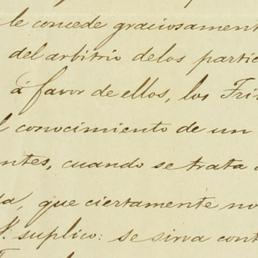 le concede graciosament
del arbitrio delos partic
á favor de ellos, los Tri
l conocimiento de un
ntes, cuando se trata
a, que ciertamente no
suplico: se sirva cont